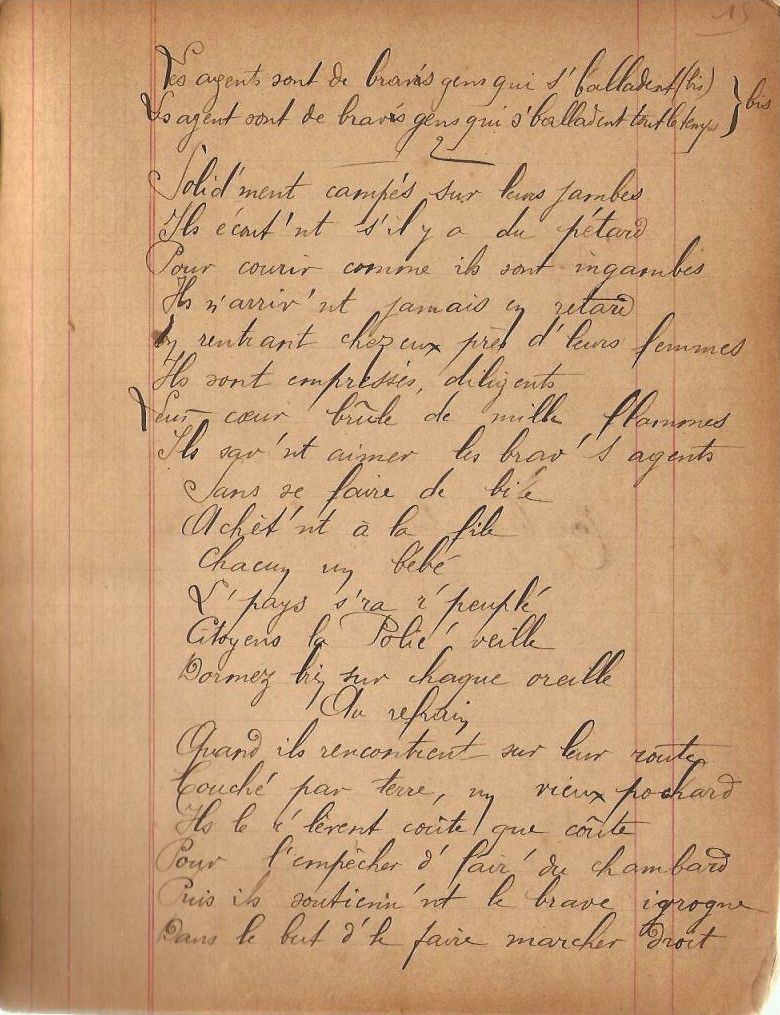 15
Les agents sont de bravés gens qui s'balladent (bis)
Ls agent sont de bravés gens qui s'balladent tout le temps } bis
2
Solid'ment campés sur leurs jambes
Ils écout'nt s'il y a du pétard
Pour courir comme ils sont ingambes
Ils n'arriv'nt jamais en retard
En rentrant chez eux près d'leurs femmes
Ils sont empressés, diligents
Leur cœur brûle de mille flammes
Ils sav'nt aimer les brav's agents
Sans se faire de bile
Achèt'nt à la file
Chacun un bébé
L'pays s'ra r'peuplé
Citoyens la Polic' veille
Dormez bien sur chaque oreille
Au refrain
Quand ils rencontrent sur leur route
Couché par terre, un vieux pochard
Ils le r'lèvent coûte que coûte
Pour l'empêcher d'fair' du chambard
Puis ils soutienn'nt le brave igrogne
Dans le but d'le faire marcher droit